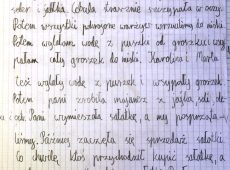 seler i żółtka. Cebula strasznie szczypała w oczy.
Potem wszystkie pokrojone warzywa wrzuciliśmy do miski.
Potem wylałam wodę z puszki od groszku i wsy-
pałam cały groszek do miski. Karolina i Marta
też wylały wodę z puszek i wsypały groszek
Potem pani zrobiła majonez z jajka soli
Pani wymieszała sałatkę, a my posprząta-
liśmy. Później zaczęła się sprzedaż sałatki.
Co chwilę ktoś przychodził kupić sałatkę, a